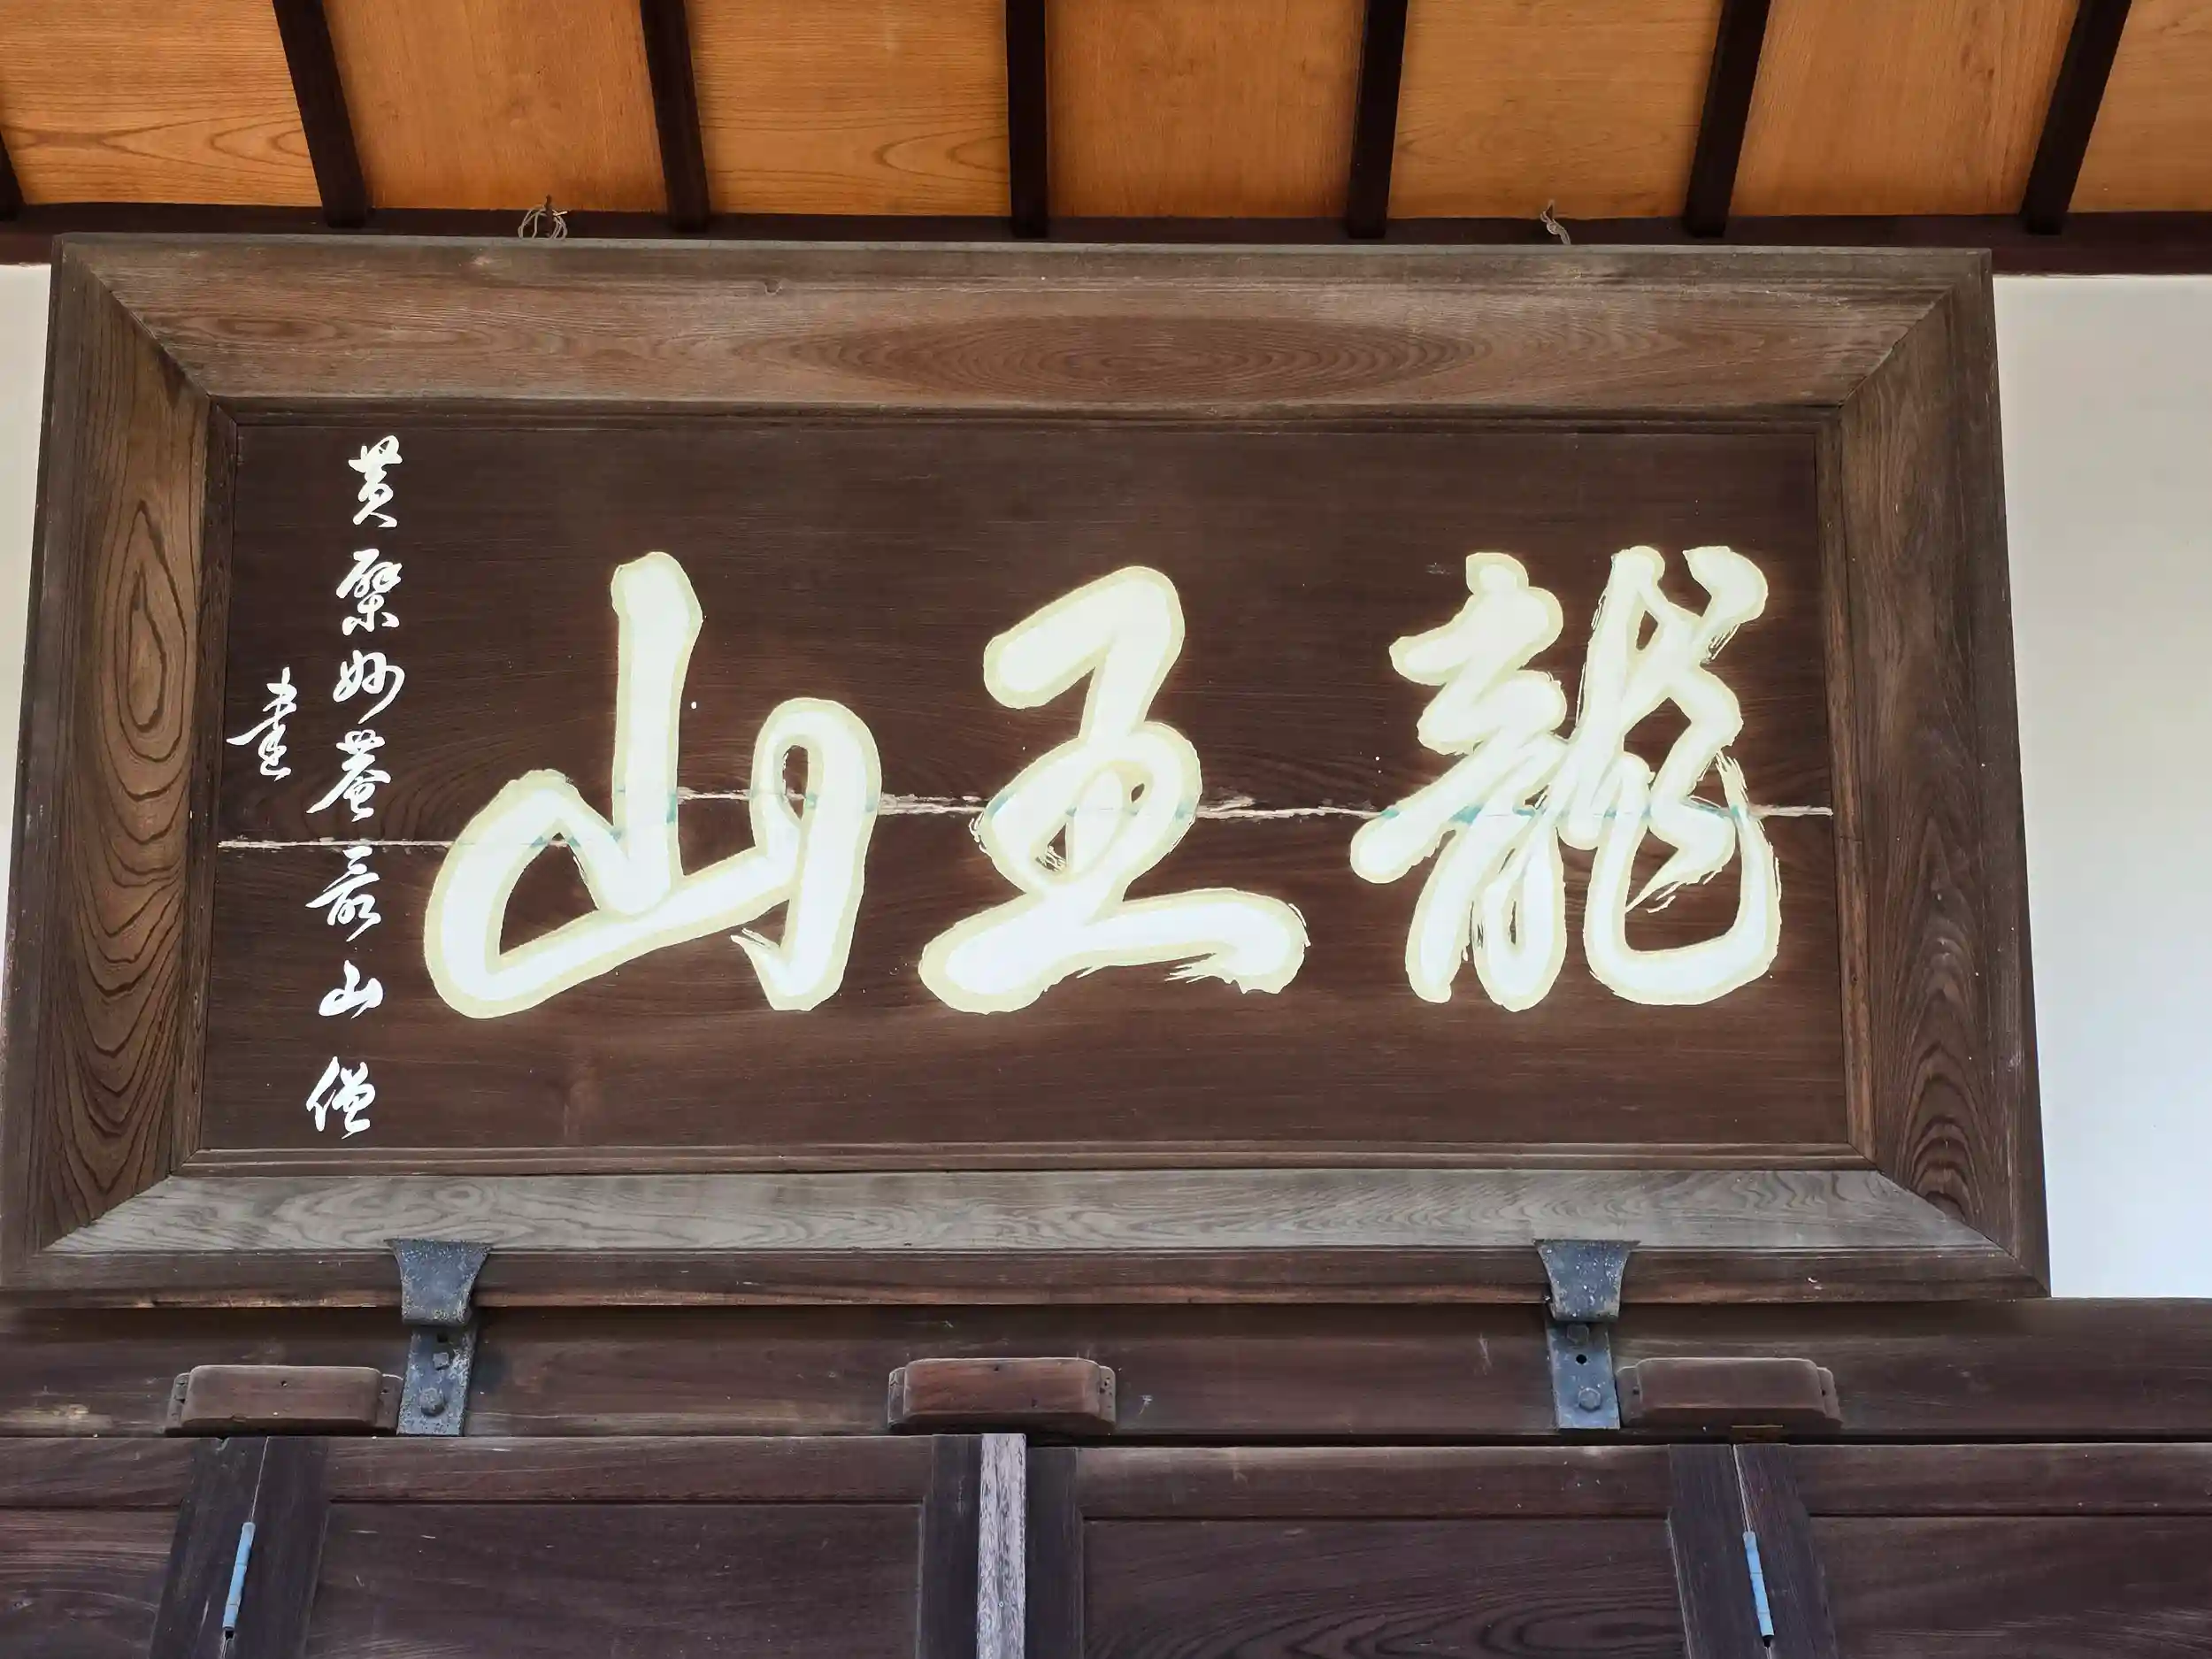 龍王山
黄檗妙菴最山僧
書